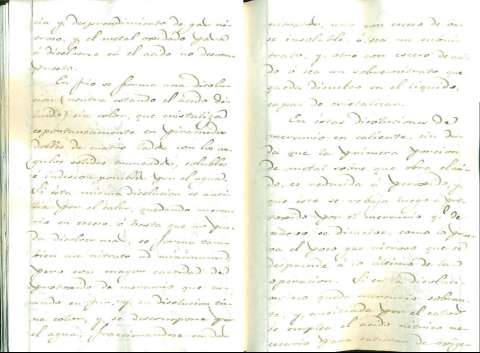 cia y desprendimiento de gas ni-
troso, y el metal oxidado pasa
á disolverse en el acido no descom-
puesto.
En frio se forma una disolu-
cion (neutra estando el acido di-
luido) sin color, que cristaliza
espontaneamente en piramides
dobles de cuatro lados con los an-
gulos solidos truncados, soluble
é indescomponible por el agua.
Si esta misma disolucion se auxi-
lia por el calor, quedando mercu-
rio en exceso ó hasta que no pue-
da disolver mas, se forma tam-
bien un nitrato de mercurio
pero con mayor cantidad de
protoxido de mercurio que
en frio, y su disolucion tie-
ne color, y se descompone por
el agua, fraccionandose en dos
una con exceso de ba-
se insoluble ó sea un
nitrato, y otro con exceso de aci-
do ó sea un sobrenitrato que
queda disuelto en el liquido,
capaz de cristalizar.
En estas disoluciones de
mercurio en caliente, sin du-
da que la primera porcion
de metal sobre que obra el aci-
do, es reducida á peroxido, y
que este se rebaja luego á pro-
toxido por el mercurio q.e se
disuelve, como lo prue-
ba el poco gas nitroso que se
desprende á lo ultimo de la
operacion. Si en la disoluci-
on no queda mercurio sobran-
te, y auxiliada por el calor
se emplea el acido nitrico ne-
cesario para